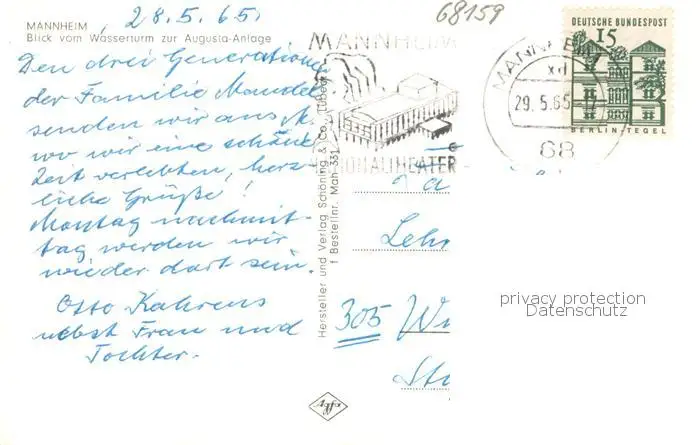 28.5.65.
68159
MANNHEIM
Blick vom Wasserturm zur Augusta-Anlage
Den drei Generationen
der Familie Mandel
senden wir aus M.
wo wir eine schöne
Zeit verlebten, herz-
liche Grüße!
Montag nachmit-
tag werden wir
wieder dort sein.
Otto Kahrens
nebst Frau und
Tochter.
Hersteller und Verlag Schöning & Co., Lübeck
Bestellnr. Mah 331
MANNHEIM
NATIONALTHEATER
MANNHEIM
xd
29.5.65-17
68
DEUTSCHE BUNDESPOST
15
BERLIN-TEGEL
Leh
305 Wi
St
privacy protection
Datenschutz
Agfa